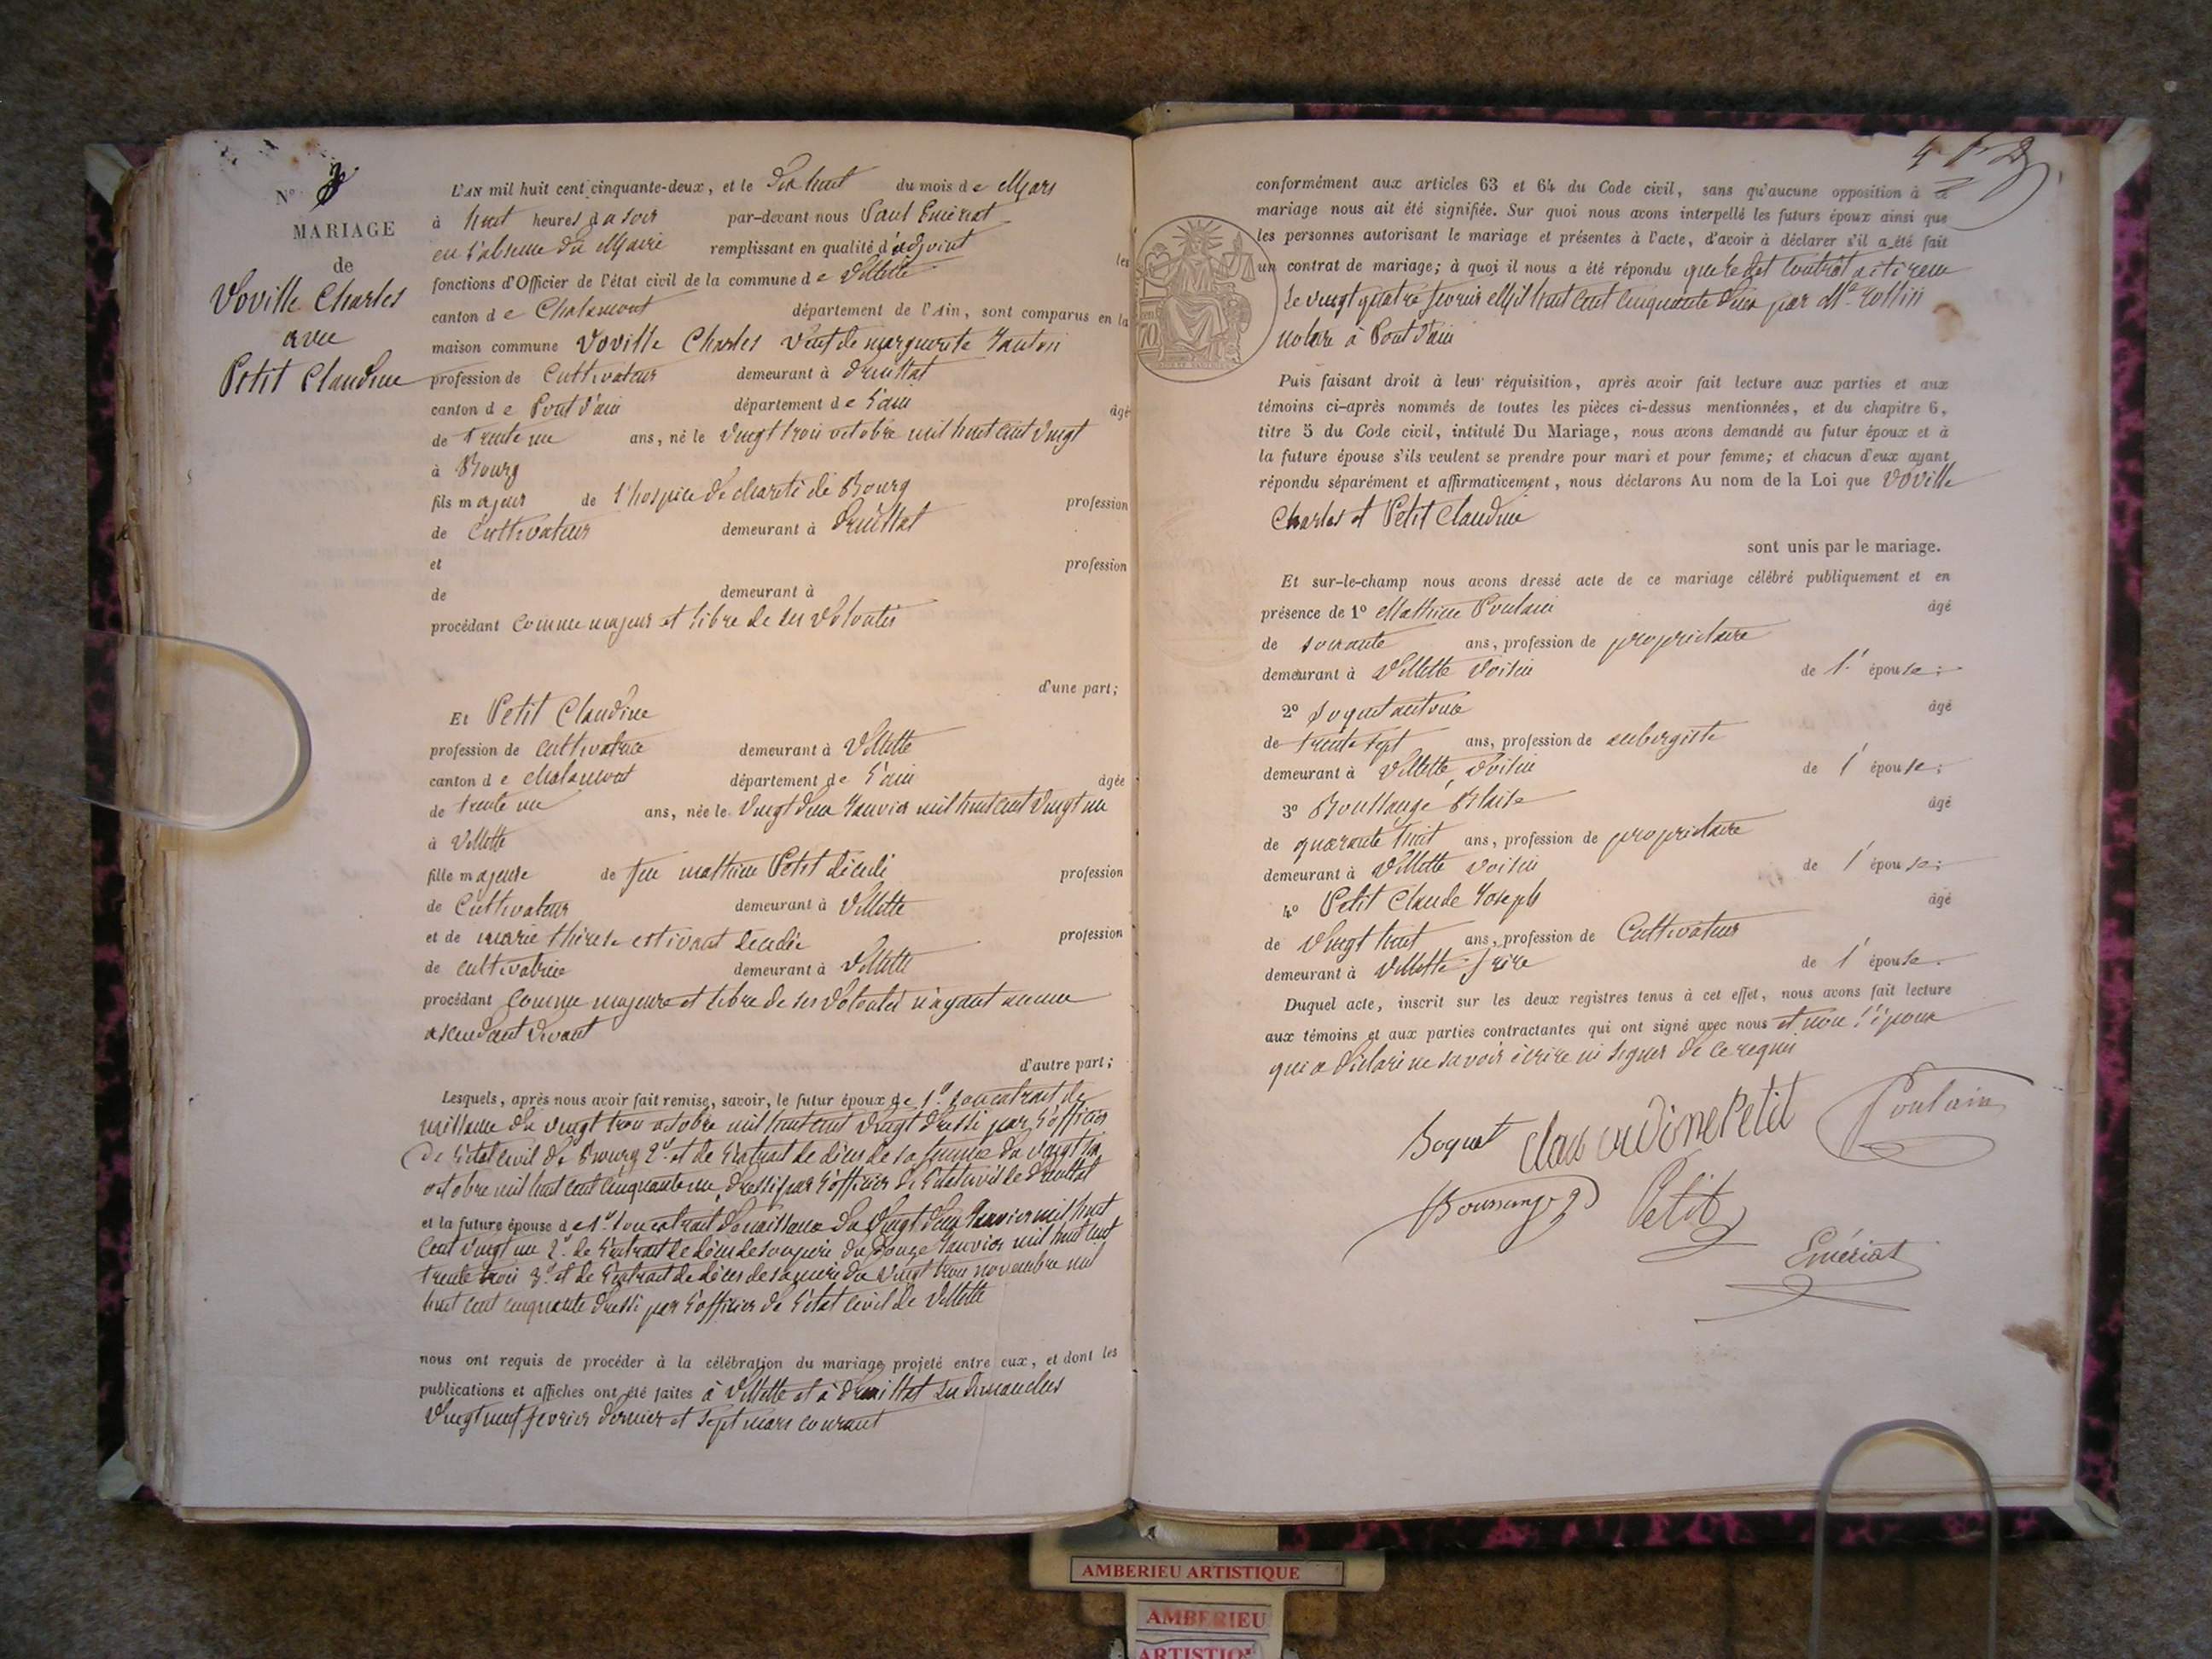 N° 3
MARIAGE
de
Voville Charles
avec
Petit Claudine
L'AN mil huit cent cinquante-deux, et le dix huit du mois de Mars
à huit heures du soir par-devant nous Paul Emériat
en l'absence du Maire remplissant en qualité d'adjoint les
fonctions d'Officier de l'état civil de la commune de Villette
canton de Chalamont département de l'Ain, sont comparus en la
maison commune Voville Charles Veuf de marguerite Janton
profession de Cultivateur demeurant à druillat
canton de Pont d'ain département de l'ain âgé
de trente un ans, né le vingt trois octobre mil huit cent vingt
à Bourg
fils majeur de l'hospice de charité de Bourg profession
de Cultivateur demeurant à Druillat
et profession
de demeurant à
procédant comme majeur et libre de ses volontés
d'une part;
Et Petit Claudine
profession de cultivatrice demeurant à Villette
canton de chalamont département de l'ain âgée
de trente un ans, née le vingt deux Janvier mil huit cent vingt un
à Villette
fille majeure de feu mathieu Petit décédé profession
de Cultivateur demeurant à Villette
et de marie thérese estivant décédée profession
de cultivatrice demeurant à Villette
procédant comme majeure et libre de ses volontés n'ayant aucun
ascendant vivant
d'autre part;
Lesquels, après nous avoir fait remise, savoir, le futur époux de 1° son extrait de
naissance du vingt trois octobre mil huit cent vingt dressé par l'officier
de l'état civil de Bourg 2° et de l'extrait de décès de sa femme du vingt
octobre mil huit cent cinquante un, dressé par l'officier de l'état civil de druillat
et la future épouse de 1° son extrait de naissance du vingt deux Janvier mil huit
cent vingt un 2° de l'extrait de décès de son père du douze Janvier mil huit cent
trente trois 3° et de l'extrait de décès de sa mère du vingt trois novembre mil
huit cent cinquante dressé par l'officier de l'état civil de Villette
nous ont requis de procéder à la célébration du mariage projeté entre eux, et dont les
publications et affiches ont été faites à Villette et à druillat les dimanches
vingt neuf fevrier dernier et sept mars courant
conformément aux articles 63 et 64 du Code civil, sans qu'aucune opposition à ce
mariage nous ait été signifiée. Sur quoi nous avons interpellé les futurs époux ainsi que
les personnes autorisant le mariage et présentes à l'acte, d'avoir à déclarer s'il a été fait
un contrat de mariage; à quoi il nous a été répondu que le dit contrat a été reçu
le vingt quatre fevrier Mil huit cent cinquante deux par Me Rollin
notaire à Pont d'ain
Puis faisant droit à leur réquisition, après avoir fait lecture aux parties et aux
témoins ci-après nommés de toutes les pièces ci-dessus mentionnées, et du chapitre 6,
titre 5 du Code civil, intitulé Du Mariage, nous avons demandé au futur époux et à
la future épouse s'ils veulent se prendre pour mari et pour femme; et chacun d'eux ayant
répondu séparément et affirmativement, nous déclarons Au nom de la Loi que Voville
Charles et Petit Claudine
sont unis par le mariage.
Et sur-le-champ nous avons dressé acte de ce mariage célébré publiquement et en
présence de 1° Mathieu Poulain âgé
de soixante ans, profession de propriétaire
demeurant à Villette voisin de l'épouse;
2° Soquet antoine âgé
de trente sept ans, profession de aubergiste
demeurant à Villette, voisin de l'épouse;
3° Boullangé Blaise âgé
de quarante huit ans, profession de propriétaire
demeurant à Villette voisin de l'épouse;
4° Petit Claude Joseph âgé
de vingt huit ans, profession de Cultivateur
demeurant à Villette frère de l'épouse.
Duquel acte, inscrit sur les deux registres tenus à cet effet, nous avons fait lecture
aux témoins et aux parties contractantes qui ont signé avec nous et non l'époux
qui a déclaré ne savoir écrire ni signer de ce requis
Soquet Claudine Petit Poulain
Petit
Emériat
AMBERIEU ARTISTIQUE
AMBERIEU
ARTISTIQ